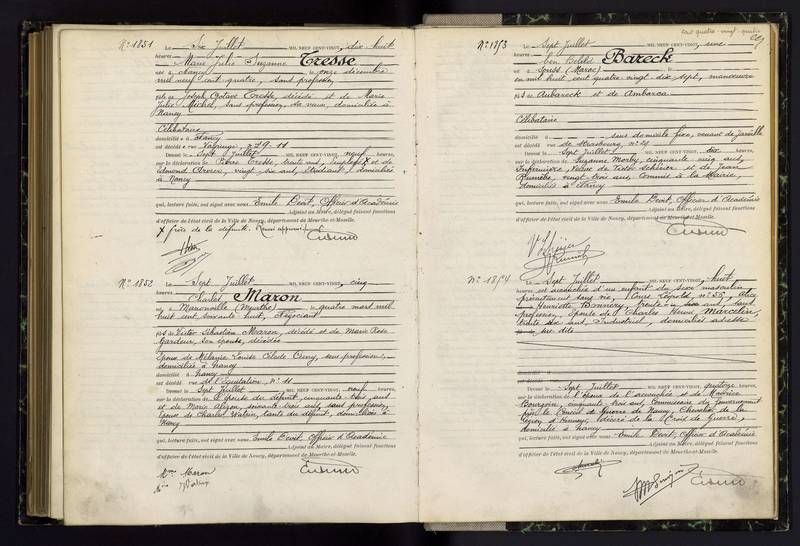 N° 1851
Le Six Juillet MIL NEUF CENT-VINGT, dix huit
heures
Marie Julie Suzanne Tresse
est à Nancy le onze décembre
mil neuf cent quatre, sans profession,
fille de Joseph Octave Tresse, décédé et de Marie
Julie Michel, sans profession, sa veuve, domiciliée à
Nancy
Célibataire
domicilié à Nancy
est décédé rue N° 11
Dressé le Sept Juillet MIL NEUF CENT-VINGT, neuf heures,
sur la déclaration de Pierre Tresse, trente ans, employé X et de
Edmond vingt six ans, étudiant, domiciliés
à Nancy
qui, lecture faite, ont signé avec nous Emile Devit, Officier d'Académie
Adjoint au Maire, délégué faisant fonctions
d'officier de l'état civil de la Ville de Nancy, département de Meurthe-et-Moselle.
X frère de la défunte.
N° 1852
Le Sept Juillet MIL NEUF CENT-VINGT, cinq
heures
Charles Maron
est à (Meurthe) le quatre mars mil
huit cent soixante huit, Négociant
fils de Victor Sébastien Maron, décédé et de Marie Rose
Gardeur, son épouse, décédée
Époux de Mélanie Louise Cuny, sans profession,
domiciliée à Nancy
domicilié à Nancy
est décédé rue de l'Equitation, N° 11
Dressé le Sept Juillet MIL NEUF CENT-VINGT, neuf heures,
sur la déclaration de l'épouse du défunt, cinquante trois ans
et de Marie soixante trois ans, sans profession,
épouse de Charles tante du défunt, domiciliées à
Nancy
qui, lecture faite, ont signé avec nous Emile Devit, Officier d'Académie
Adjoint au Maire, délégué faisant fonctions
d'officier de l'état civil de la Ville de Nancy, département de Meurthe-et-Moselle.
Mme Maron
cent quatre-vingt-quatre
N° 1853
Le Sept Juillet MIL NEUF CENT-VINGT, une
heures
ben Belaïd Bareck
est à Souss (Maroc) le
en mil huit cent quatre vingt dix sept, manœuvre
fils de Aubareck et de Ambarca
Célibataire
domicilié à sans domicile fixe, venant de Jarville
est décédé rue de Strasbourg, N° 29
Dressé le Sept Juillet MIL NEUF CENT-VINGT, dix heures,
sur la déclaration de Suzanne Morby, cinquante cinq ans,
Infirmière, et de Jean
vingt trois ans, Commis à la Mairie,
domiciliés à Nancy
qui, lecture faite, ont signé avec nous Emile Devit, Officier d'Académie
Adjoint au Maire, délégué faisant fonctions
d'officier de l'état civil de la Ville de Nancy, département de Meurthe-et-Moselle.
N° 1854
Le Sept Juillet MIL NEUF CENT-VINGT, huit
heures est accouchée d'un enfant du sexe masculin
présentement sans vie, Cours Léopold, N° 55, Alice
Henriette Bonnery, trente ans, sans
profession, épouse de Charles Henri Marcelin,
trente six ans, Industriel, domiciliés adresse
sus dite
domicilié à
est décédé rue
Dressé le Sept Juillet MIL NEUF CENT-VINGT, quatorze heures,
sur la déclaration de l'époux de l'accouchée et de Maurice
Bourgon, cinquante trois ans, Commissaire du Gouvernement
près le Conseil de guerre de Nancy, Chevalier de la
Légion d'honneur, décoré de la Croix de Guerre,
domiciliés à Nancy
qui, lecture faite, ont signé avec nous Emile Devit, Officier d'Académie
Adjoint au Maire, délégué faisant fonctions
d'officier de l'état civil de la Ville de Nancy, département de Meurthe-et-Moselle.